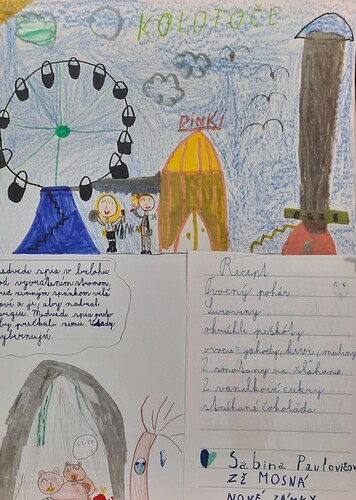 KOLOTOČE
PINKI
medvede spia v brlohu
pod vyvráteným stromom,
pred zimným spánkom veľa
a je, aby nabral
Medvede spia preto
aby prečkali zimu.
hybernujú.
Recept
Ovocný pohár
Suroviny
okrúhle piškóty
ovocie - jahody, kivi, maliny
2 smotany na šľahanie
2 vanilkové cukry
strúhaná čokoláda
Sabina Pavlovičov
ZŠ MOSNÁ
NOVÉ ZÁMKY